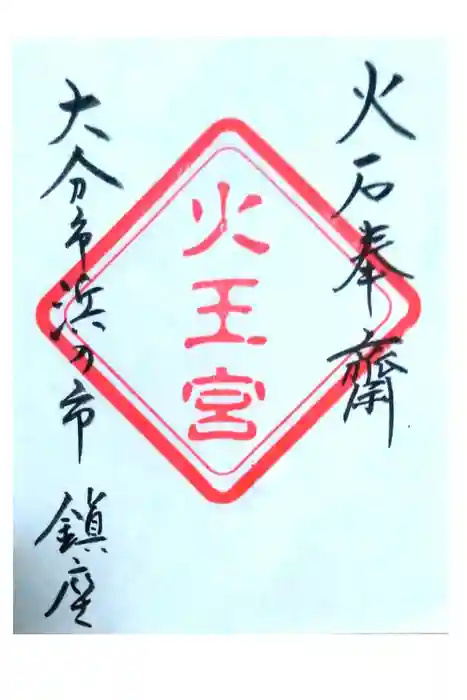 火石奉齋
火王宮
大分市浜の市 鎮座